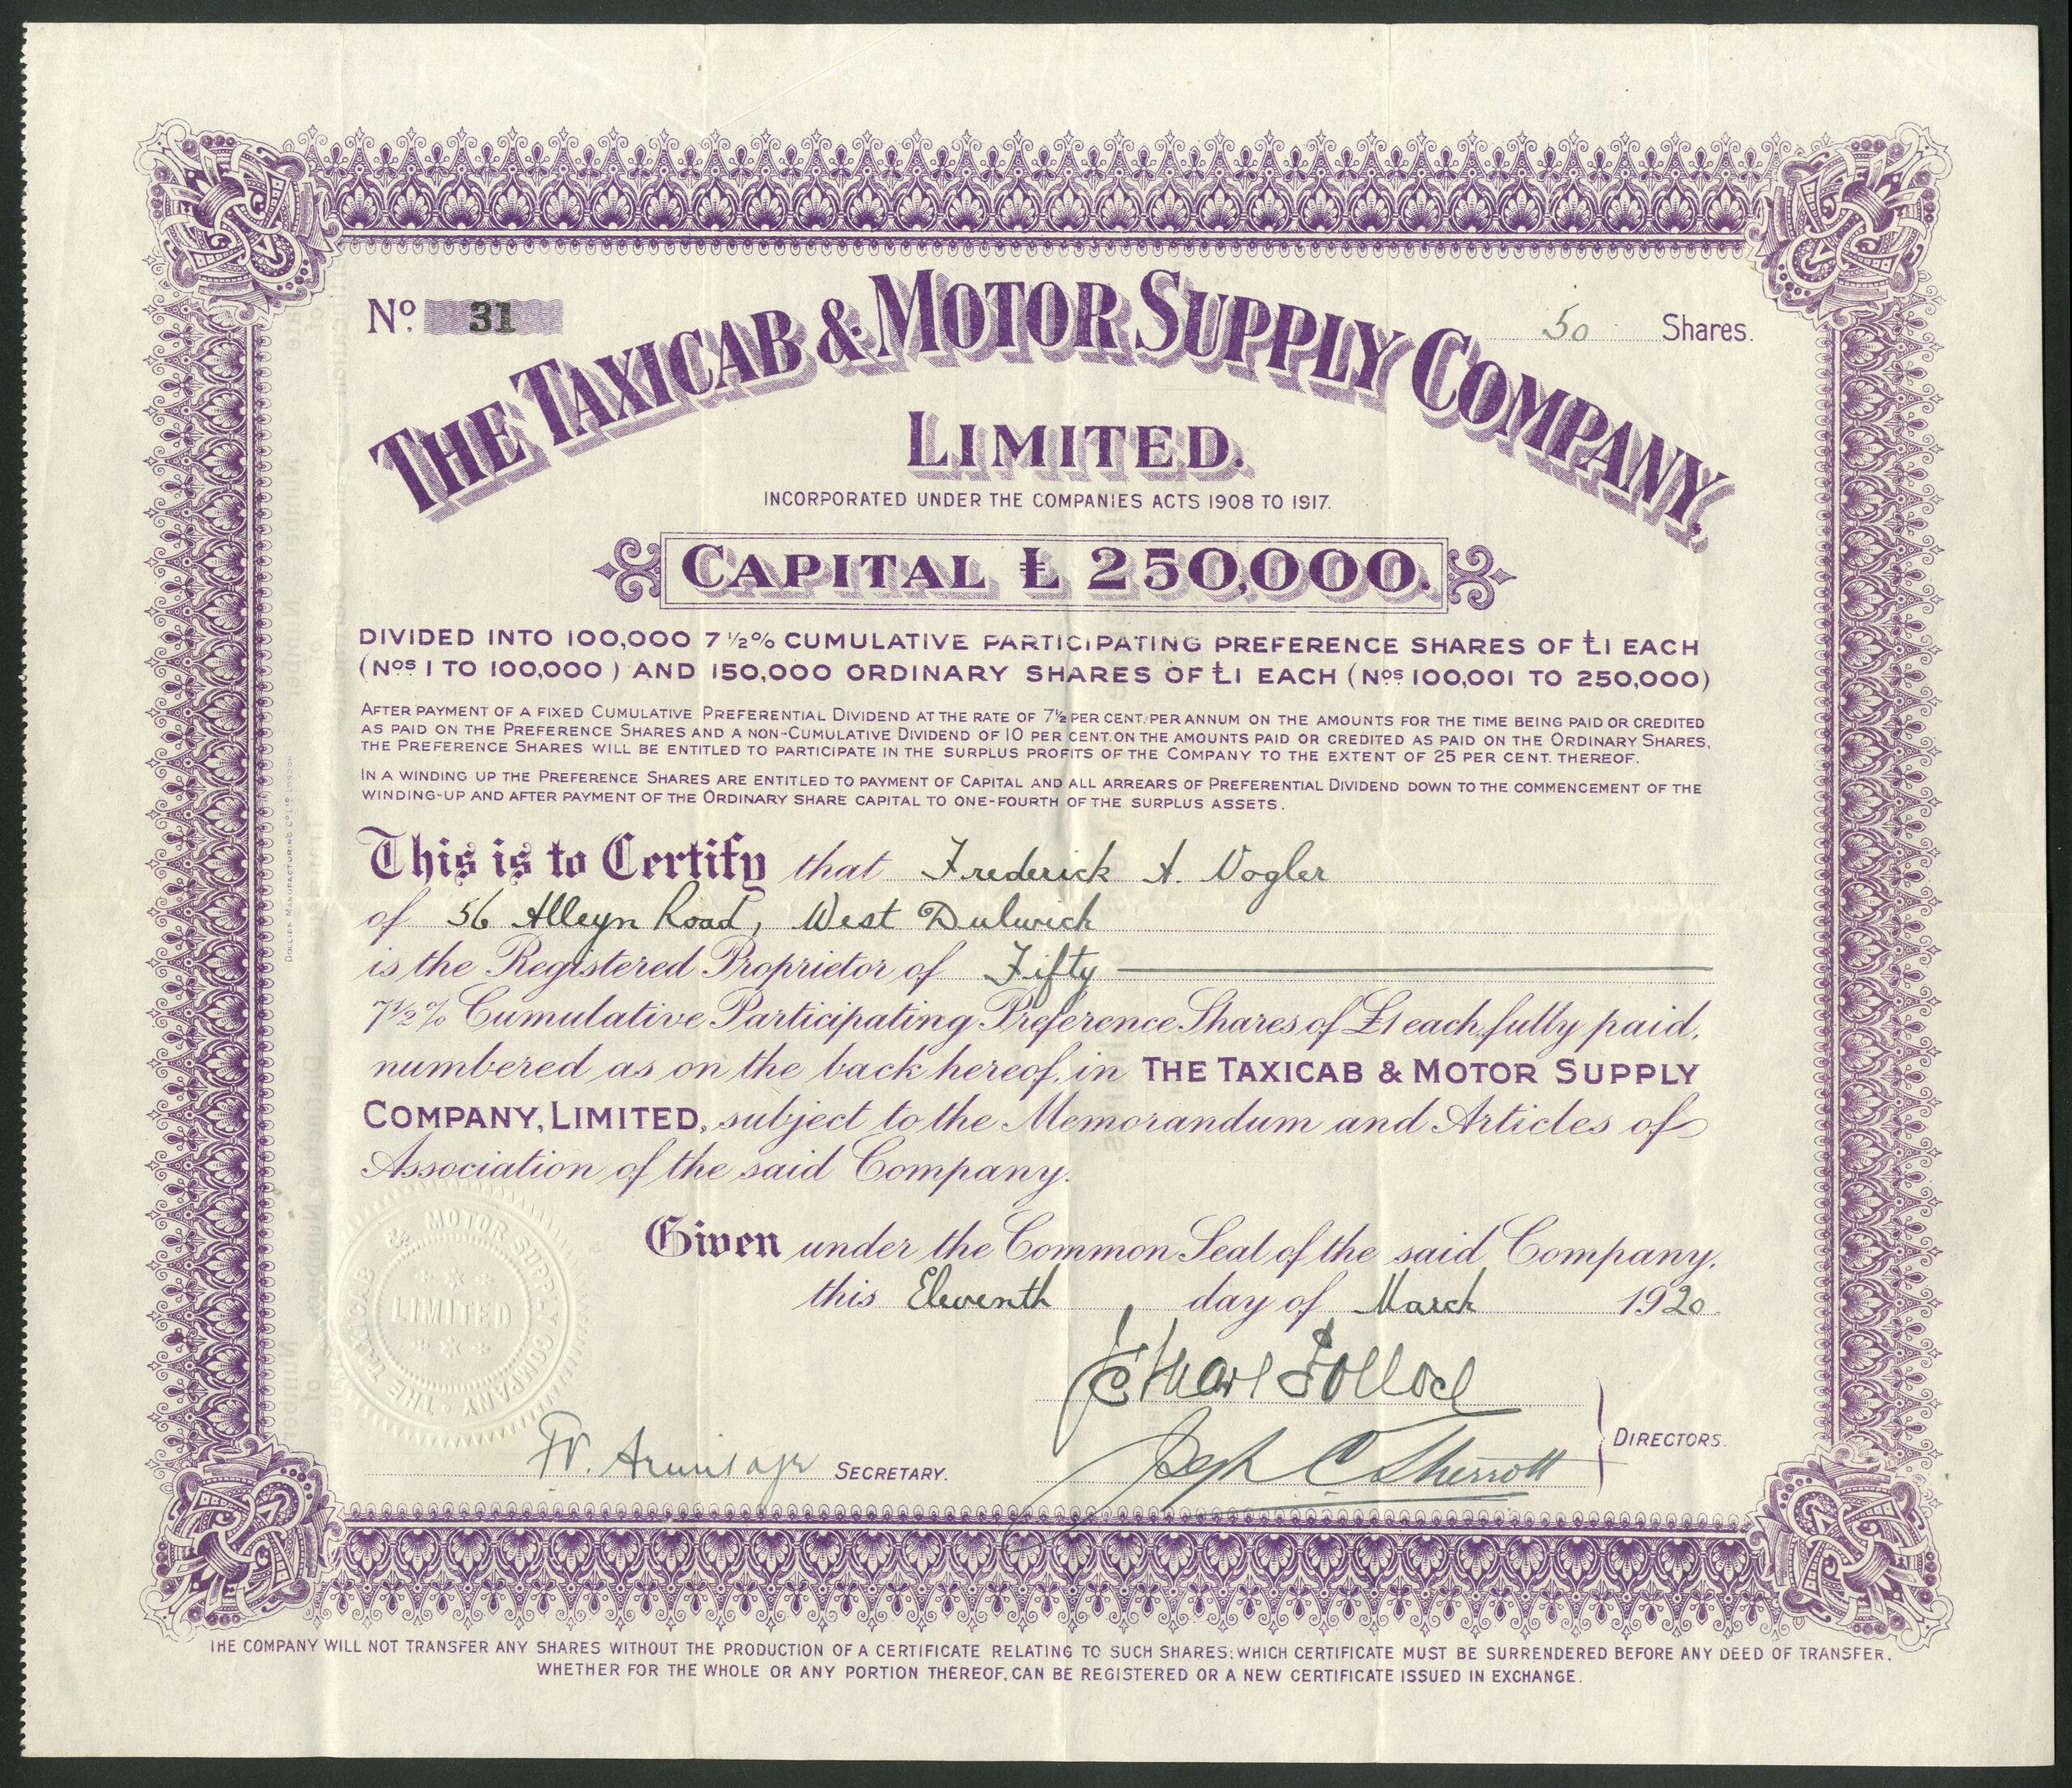 No. 31
50 Shares.
THE TAXICAB & MOTOR SUPPLY COMPANY,
LIMITED.
INCORPORATED UNDER THE COMPANIES ACTS 1908 TO 1917.
CAPITAL £ 250,000.
DIVIDED INTO 100,000 7 ½% CUMULATIVE PARTICIPATING PREFERENCE SHARES OF £1 EACH
(Nos 1 TO 100,000) AND 150,000 ORDINARY SHARES OF £1 EACH (Nos 100,001 TO 250,000)
AFTER PAYMENT OF A FIXED CUMULATIVE PREFERENTIAL DIVIDEND AT THE RATE OF 7½ PER CENT. PER ANNUM ON THE AMOUNTS FOR THE TIME BEING PAID OR CREDITED
AS PAID ON THE PREFERENCE SHARES AND A NON-CUMULATIVE DIVIDEND OF 10 PER CENT. ON THE AMOUNTS PAID OR CREDITED AS PAID ON THE ORDINARY SHARES,
THE PREFERENCE SHARES WILL BE ENTITLED TO PARTICIPATE IN THE SURPLUS PROFITS OF THE COMPANY TO THE EXTENT OF 25 PER CENT. THEREOF.
IN A WINDING UP THE PREFERENCE SHARES ARE ENTITLED TO PAYMENT OF CAPITAL AND ALL ARREARS OF PREFERENTIAL DIVIDEND DOWN TO THE COMMENCEMENT OF THE
WINDING-UP AND AFTER PAYMENT OF THE ORDINARY SHARE CAPITAL TO ONE-FOURTH OF THE SURPLUS ASSETS.
This is to Certify that Frederick A. Vogler
of 56 Alleyn Road, West Dulwich
is the Registered Proprietor of Fifty
7½% Cumulative Participating Preference Shares of £1 each fully paid,
numbered as on the back hereof, in THE TAXICAB & MOTOR SUPPLY
COMPANY, LIMITED, subject to the Memorandum and Articles of
Association of the said Company.
Given under the Common Seal of the said Company,
this Eleventh day of March 1920
THE TAXICAB & MOTOR SUPPLY COMPANY
LIMITED
DIRECTORS.
Joseph C Sherrott
F.V. Armitage SECRETARY.
THE COMPANY WILL NOT TRANSFER ANY SHARES WITHOUT THE PRODUCTION OF A CERTIFICATE RELATING TO SUCH SHARES; WHICH CERTIFICATE MUST BE SURRENDERED BEFORE ANY DEED OF TRANSFER,
WHETHER FOR THE WHOLE OR ANY PORTION THEREOF, CAN BE REGISTERED OR A NEW CERTIFICATE ISSUED IN EXCHANGE.